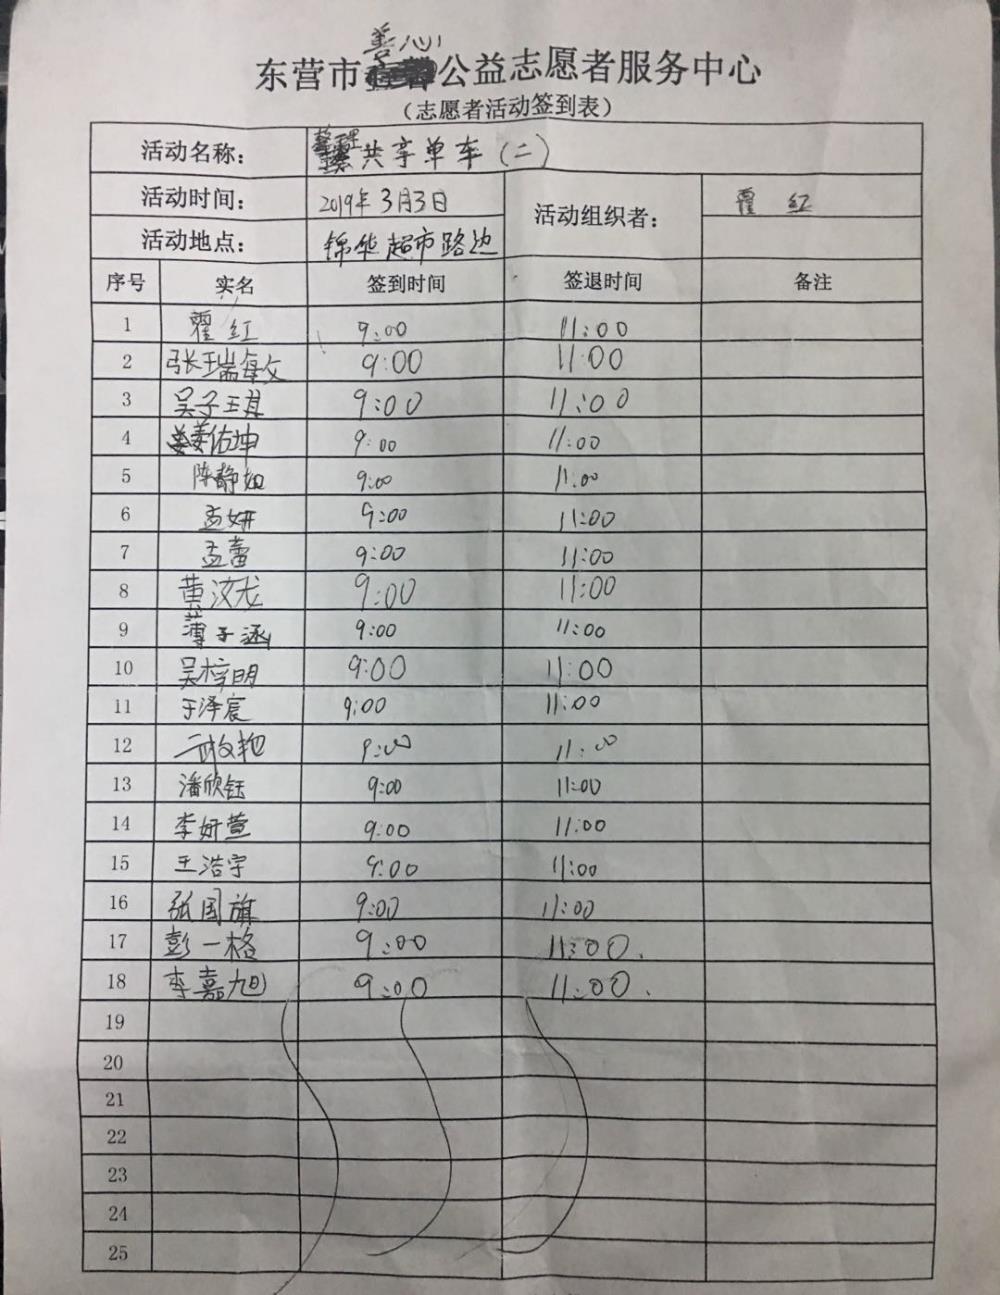 善心
东营市公益志愿者服务中心
（志愿者活动签到表）
活动名称： 整理共享单车（二）
活动时间： 2019年3月3日 活动组织者： 霍红
活动地点： 锦华超市路边
序号 实名 签到时间 签退时间 备注
1 霍红 9:00 11:00
2 张瑞敏 9:00 11:00
3 吴子琪 9:00 11:00
4 姜佑坤 9:00 11:00
5 陈静如 9:00 11:00
6 孟妍 9:00 11:00
7 孟蕾 9:00 11:00
8 黄汶龙 9:00 11:00
9 薄子涵 9:00 11:00
10 吴梓明 9:00 11:00
11 于泽宸 9:00 11:00
12 9:00 11:00
13 潘欣钰 9:00 11:00
14 李妍萱 9:00 11:00
15 王浩宇 9:00 11:00
16 张国旗 9:00 11:00
17 彭一格 9:00 11:00.
18 李嘉旭 9:00 11:00.
19
20
21
22
23
24
25